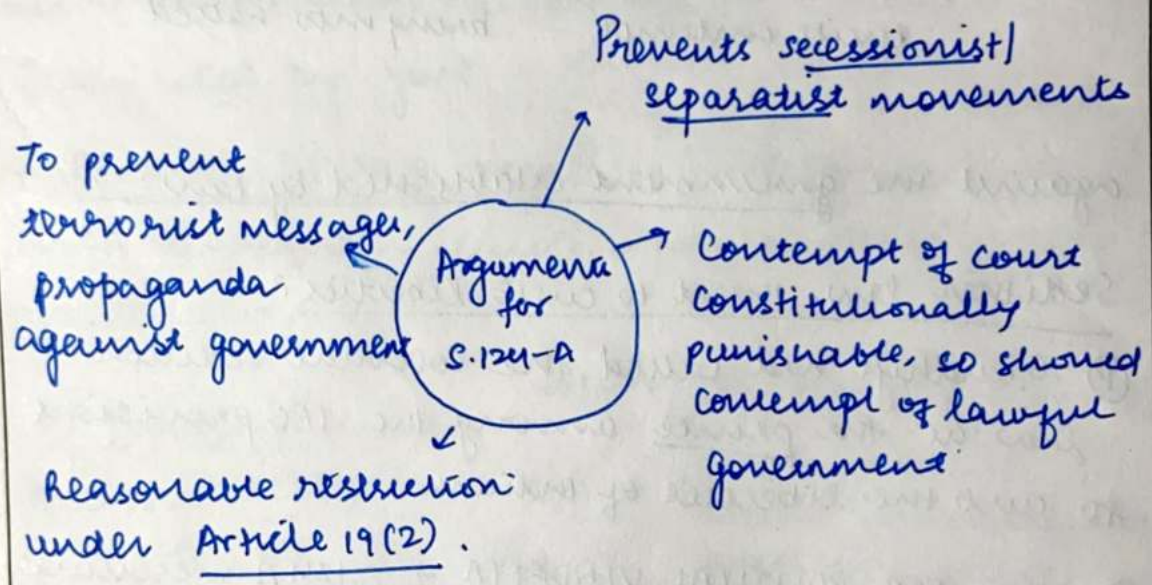 Prevents secessionist/
separatist movements
To prevent
terrorist messages,
propaganda
against government
Arguments
for
S.124-A
Contempt of court
constitutionally
punishable, so should
contempt of lawful
government
Reasonable restriction
under Article 19(2).